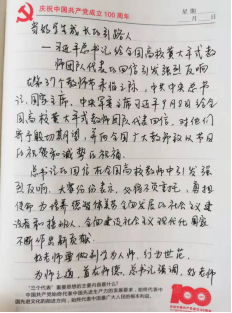 庆祝中国共产党成立100周年
星期
月 日
当好学生成长的引路人
—习近平总书记给全国高校黄大年式教
师团队代表的回信引发强烈反响
在第37个教师节来临之际，中共中央总书
记、国家主席、中央军委主席习近平9月8日给全
国高校黄大年式教师团队代表回信，对他们
寄予殷切期望，并向全国广大教师致以节日
的祝贺和诚挚的祝福。
总书记的回信在全国高校教师中引发强
烈反响，大家纷纷表示，必将不负重托，肩担
使命，为培养德智体美劳全面发展的社会主义建
设者和接班人、全面建设社会主义现代化国家
不断作出新贡献。
好老师要做到学为人师，行为世范
为师之道，首在师德，总书记强调，好老师
“三个代表”重要思想的主要内容是什么？
中国共产党始终代表中国先进生产力的发展要求，始终代表中国
先进文化的前进方向，始终代表中国最广大人民的根本利益。
100